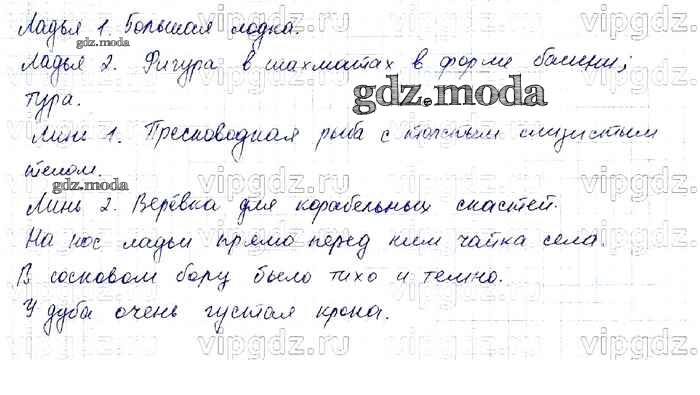 Ладья 1. Большая лодка.
gdz.moda
Ладья 2. Фигура в шахматах в форме башни;
тура.
gdz.moda
Линь 1. Пресноводная рыба с толстым слизистым
телом.
gdz.moda
Линь 2. Верёвка для корабельных снастей.
На нос ладьи прямо перед ним чайка села.
В сосновом бору было тихо и темно.
У дуба очень густая крона.
vipgdz.ru